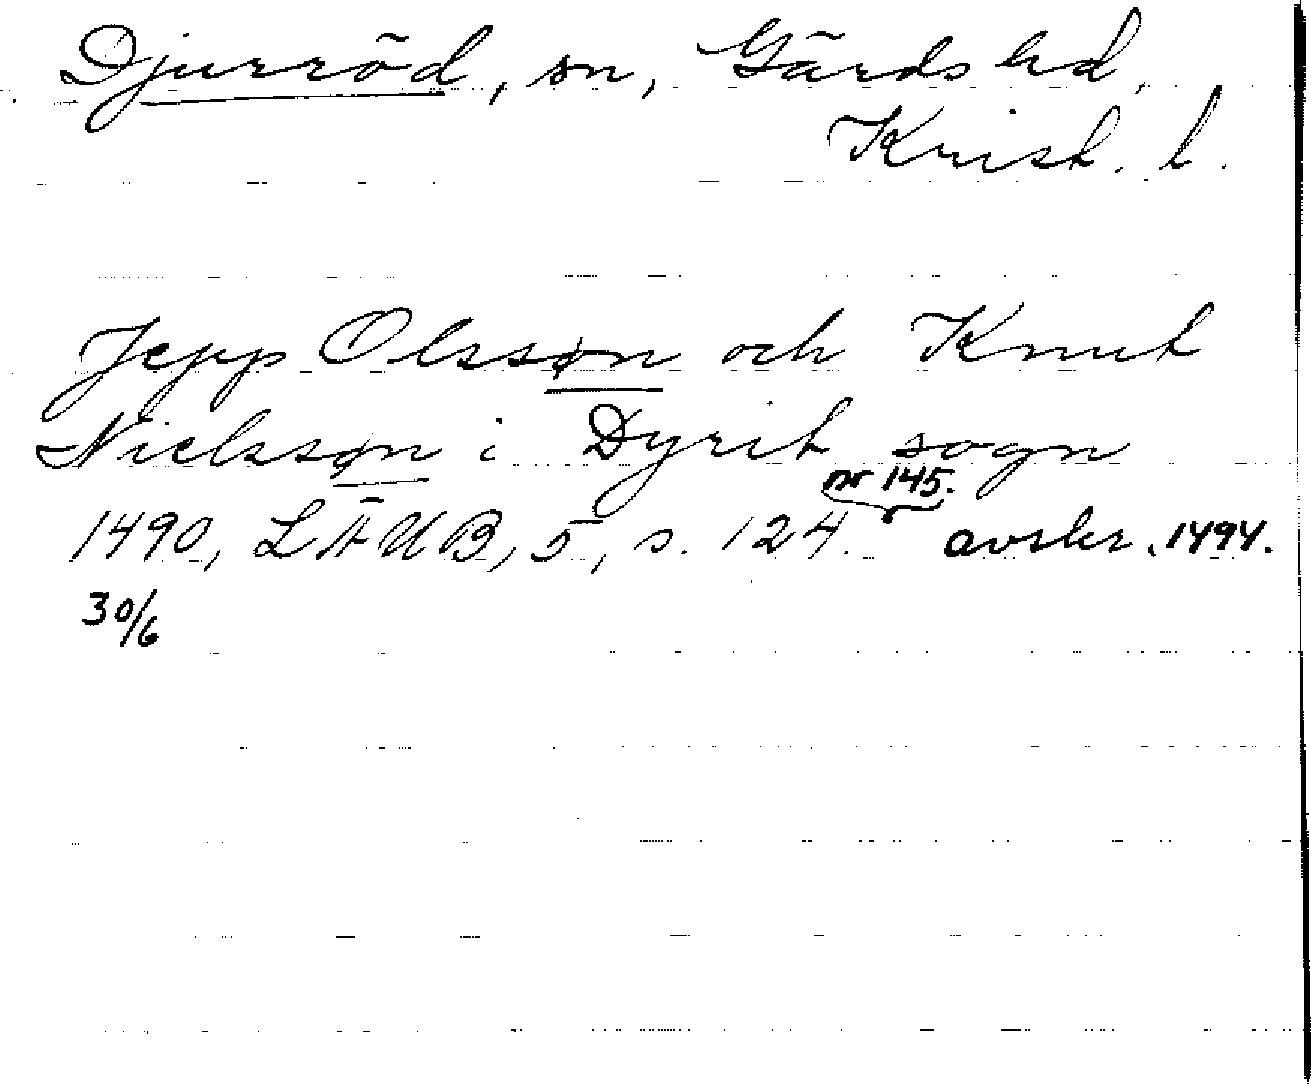 Djurröd, sn, Gärds hd,
Krist. l.
Jepp Olssøn och Knut
Nielssøn i Dyrit sogn
nr 145.
1490, LÄUB, 5, s. 124. avskr. 1494.
30/6